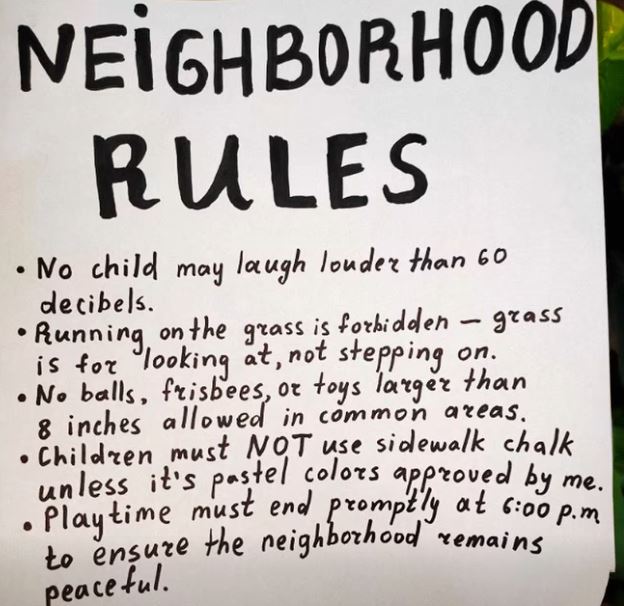 NEiGHBORHOOD
RULES
• No child may laugh louder than 60
decibels.
• Running on the grass is forbidden — grass
is for looking at, not stepping on.
• No balls, frisbees, or toys larger than
8 inches allowed in common areas.
• Children must NOT use sidewalk chalk
unless it's pastel colors approved by me.
• Playtime must end promptly at 6:00 p.m
to ensure the neighborhood remains
peaceful.